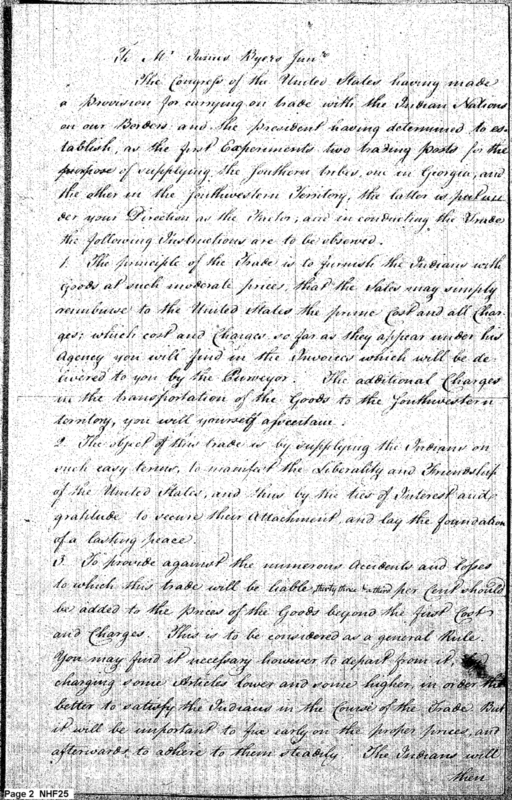 To Mr James Byers Junr
The Congress of the United States having made
a provision for carrying on trade with the Indian Nations
on our Borders and the president having determined to es-
tablish, as the first Experiments two trading posts for the
purpose of supplying the Southern tribes, one in Georgia, and
the other in the Southwestern Territory, the latter is put un
der your Direction as the Factor; and in conducting the Trade
the following Instructions are to be observed.
1. The principle of the Trade is to furnish the Indians with
Goods at such moderate prices, that the Sales may simply
reimburse to the United States the prime Cost and all Char-
ges; which cost and Charges so far as they appear under his
Agency you will find in the Invoices which will be de
livered to you by the Purveyor. The additional Charges
in the transportation of the Goods to the Southwestern
territory, you will yourself ascertain.
2. The object of this trade is by supplying the Indians on
such easy terms, to manifest the Liberality and Friendship
of the United States, and thus by the ties of Interest and
gratitude to secure their Attachment, and lay the foundation
of a lasting peace.
3. To provide against the numerous Accidents and losses
to which this trade will be liable, thirty three & a third per Cent should
be added to the prices of the Goods beyond the first Cost
and Charges. This is to be considered as a general Rule.
You may find it necessary however to depart from it,
charging some Articles lower and some higher, in order the
better to satisfy the Indians in the Course of the Trade. But
it will be important to fix early on the proper prices, and
afterwards to adhere to them steadily. The Indians will
then
Page 2 NHF25